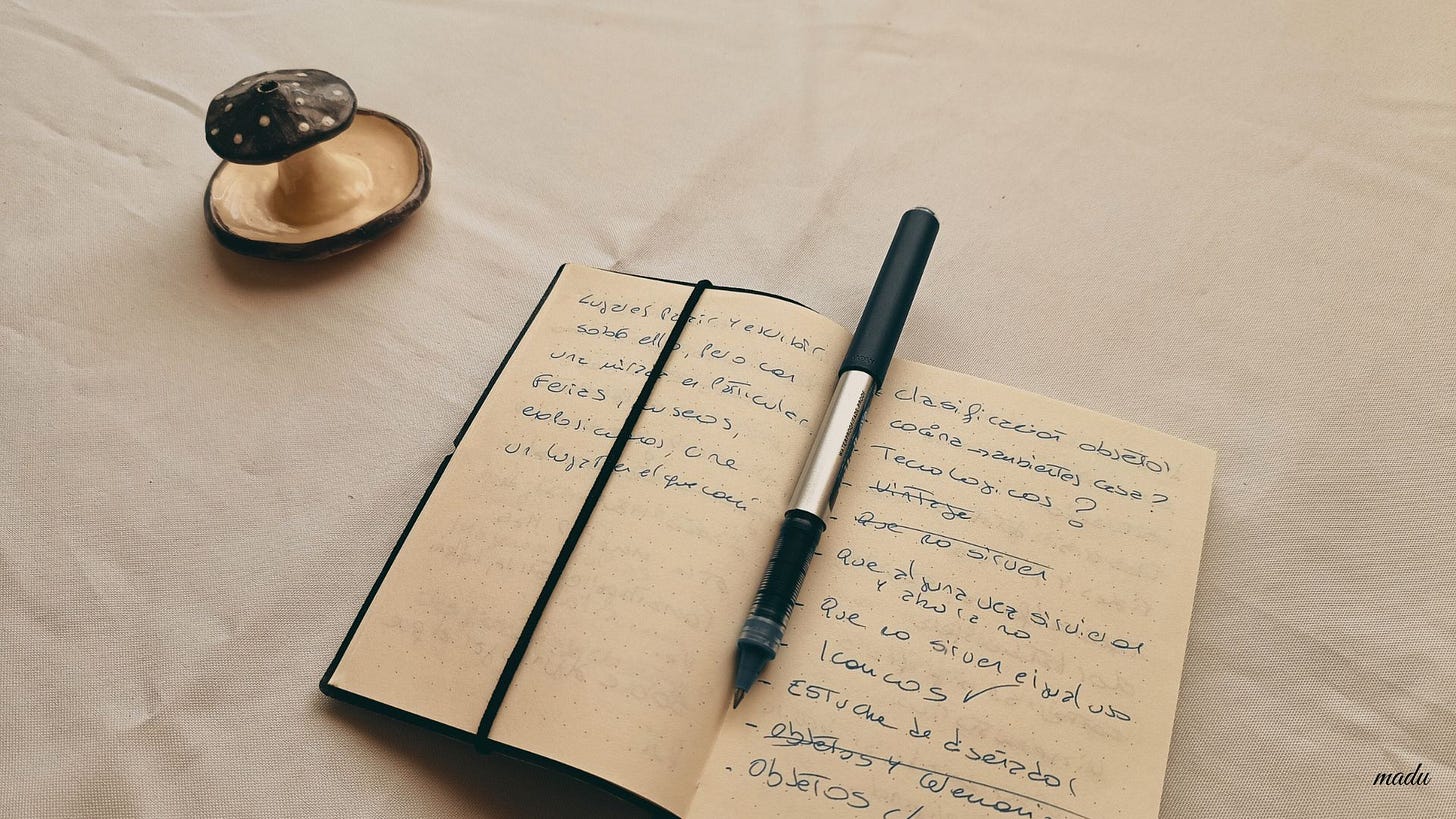 Lugares para ir y escribir
sobre ello, pero con
una mirada en particular
Ferias, museos,
exposiciones, cine
un lugar en el que comí
clasificación objetos
cocina → ambientes casa?
Tecnologicos?
- Vintage
- Que no sirven
- Que alguna vez sirvieron
y ahora no
- Que no sirven e igual uso
- Iconicos ✓
- Estuche de diseñador
- Objetos y
- Objetos
madu